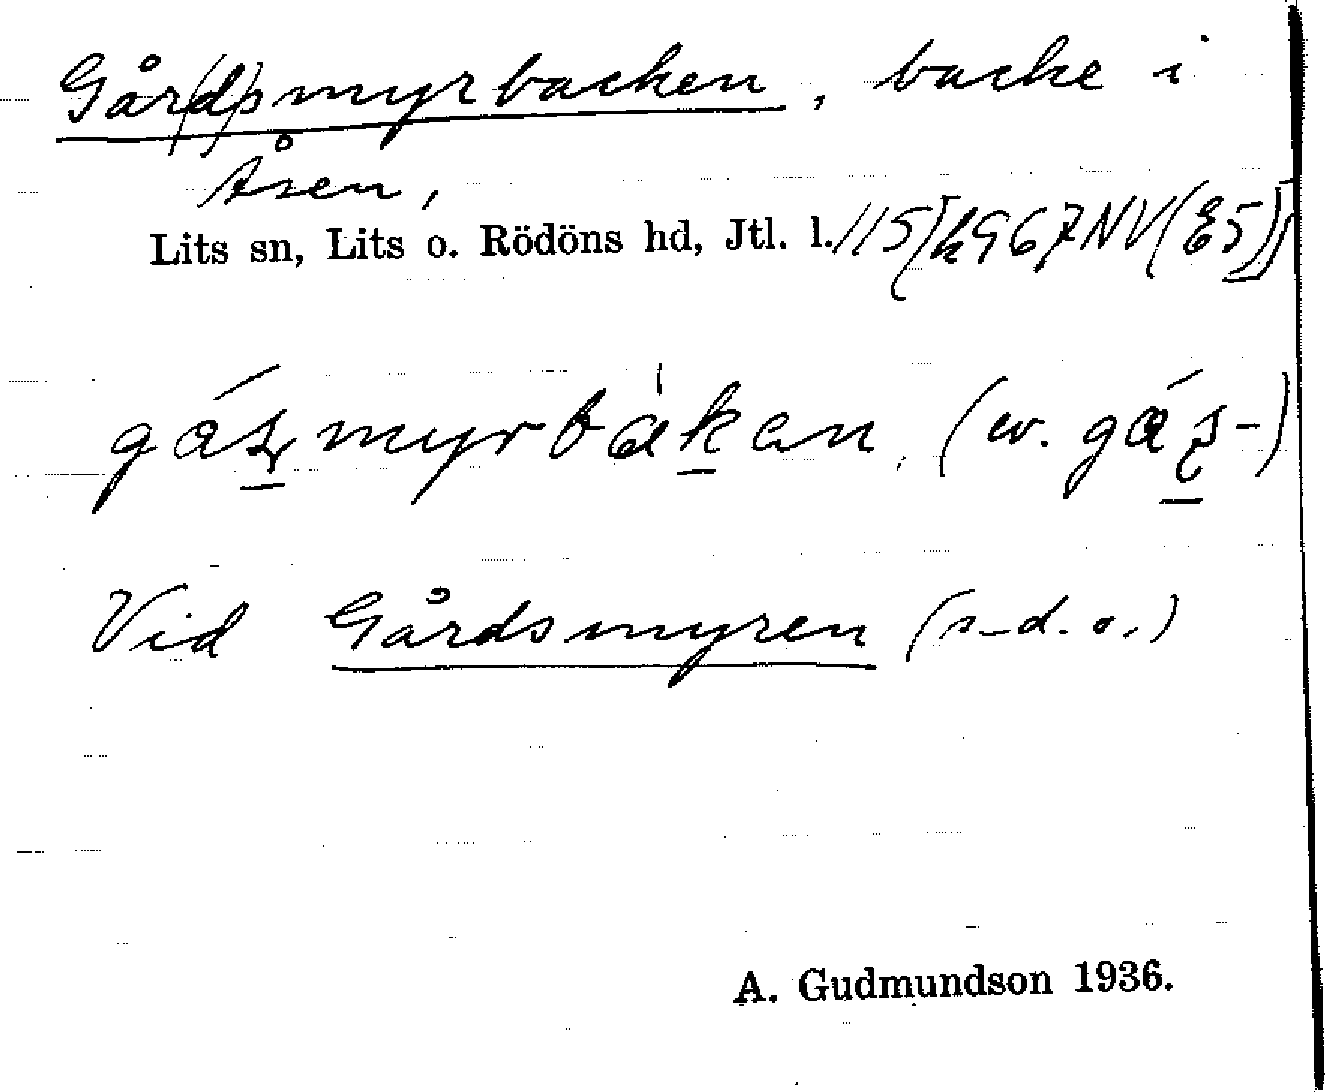 Går(d)smyrbacken, backe i
Åsen,
Lits sn, Lits o. Rödöns hd, Jtl. l. 115[k967NV(E5)]
Vid Gårdsmyren (s-d.o.)
A. Gudmundson 1936.